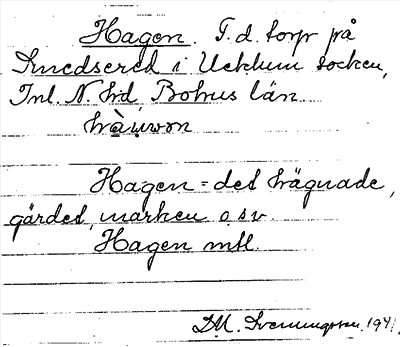 Hagen. F.d. torp på
Smedsered i Ucklum socken,
Inl. N. hd Bohus län
Hagen = det hägnade,
gärdet, marken o.sv.
Hagen mtl.
D.M. Svenningsson. 1941.